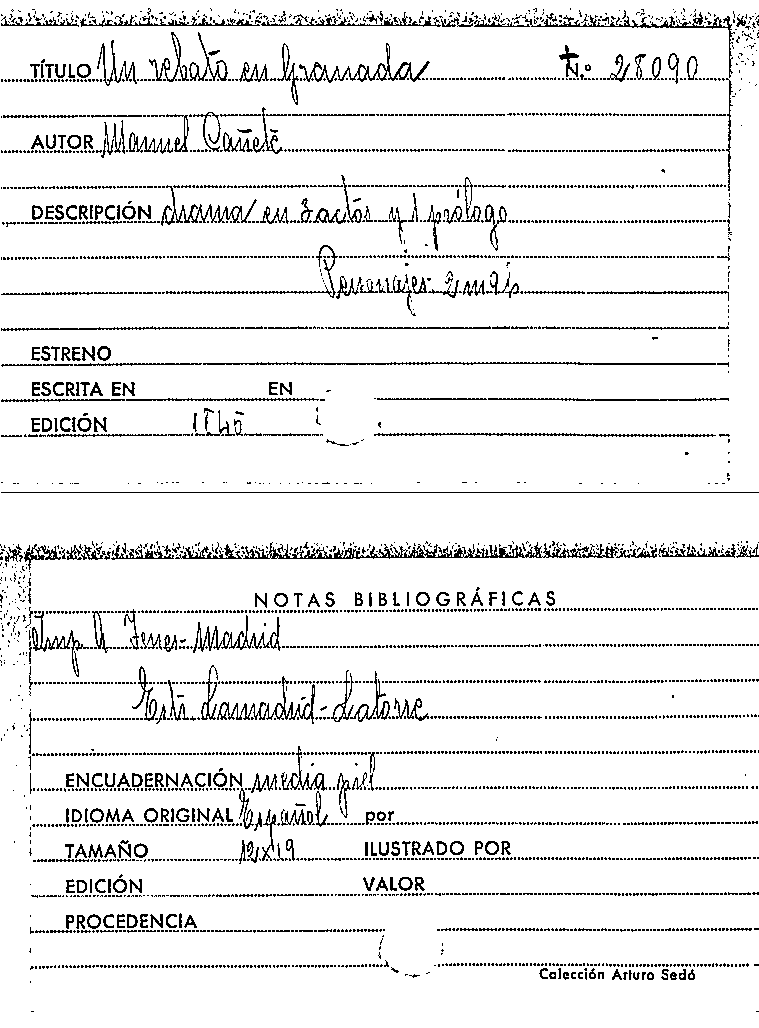 TÍTULO Un rebato en Granada N.º 28090
AUTOR Manuel Cañete
DESCRIPCIÓN drama en 3 actos y 1 prólogo
Personajes
ESTRENO
ESCRITA EN EN
EDICIÓN
NOTAS BIBLIOGRÁFICAS
Imp Madrid
Lamadrid-Latorre
ENCUADERNACIÓN media piel
IDIOMA ORIGINAL Español por
TAMAÑO 12x19 ILUSTRADO POR
EDICIÓN VALOR
PROCEDENCIA
Colección Arturo Sedó